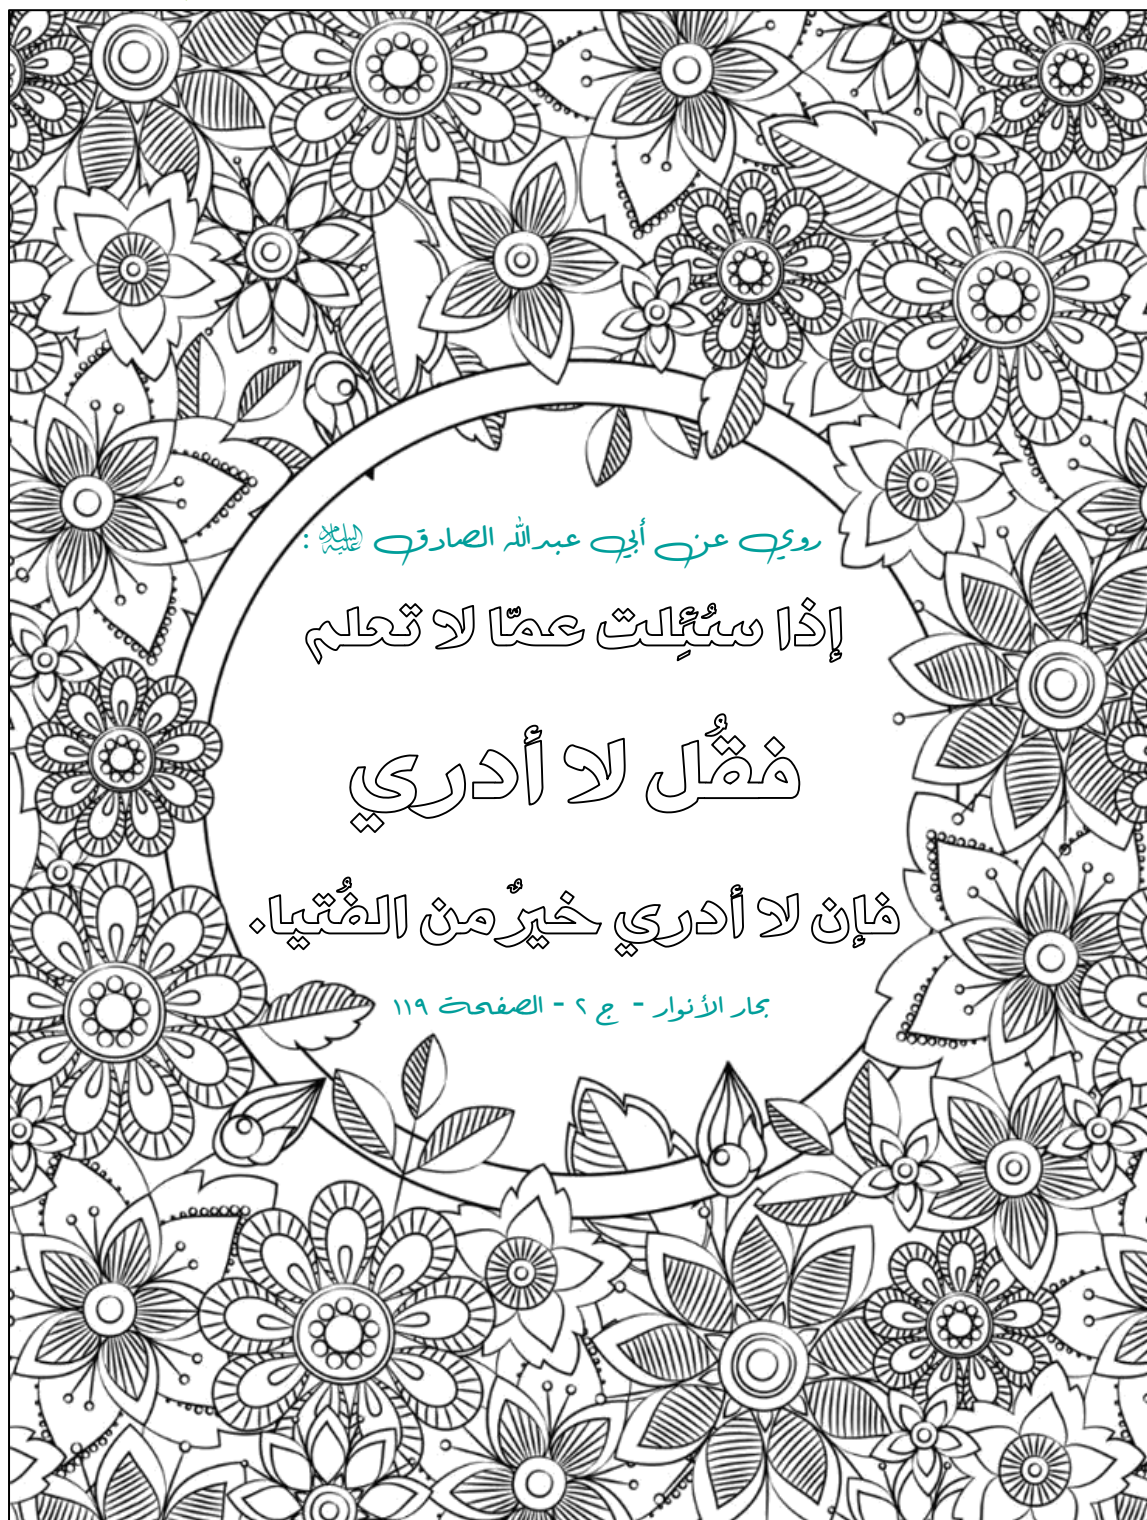 روي عن أبي عبدالله الصادق عليه السلام :
إذا سُئِلت عمّا لا تعلم
فقُل لا أدري
فإن لا أدري خيرٌ من الفُتيا.
بحار الأنوار - ج ٢ - الصفحة ١١٩